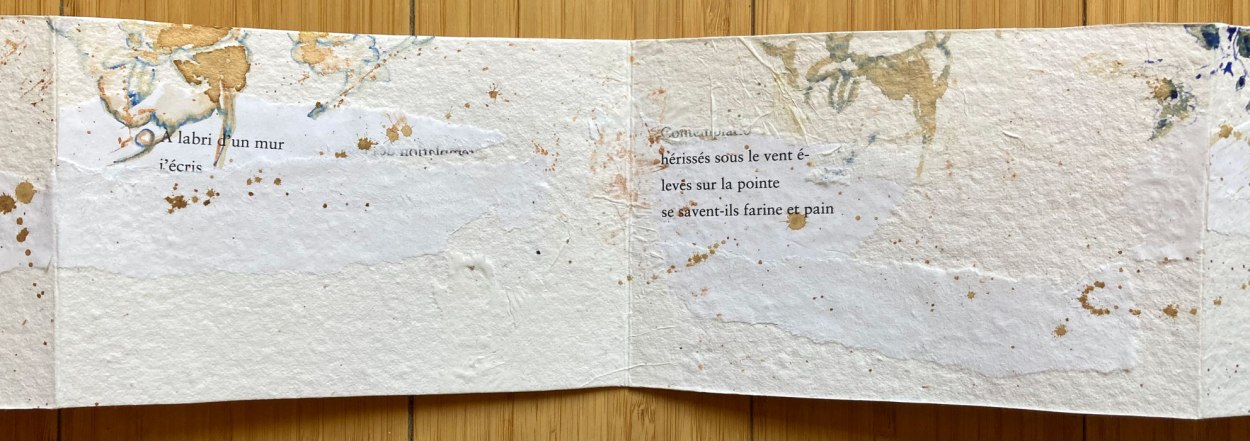 A labri d'un mur
j'écris
hérissés sous le vent é-
levés sur la pointe
se savent-ils farine et pain